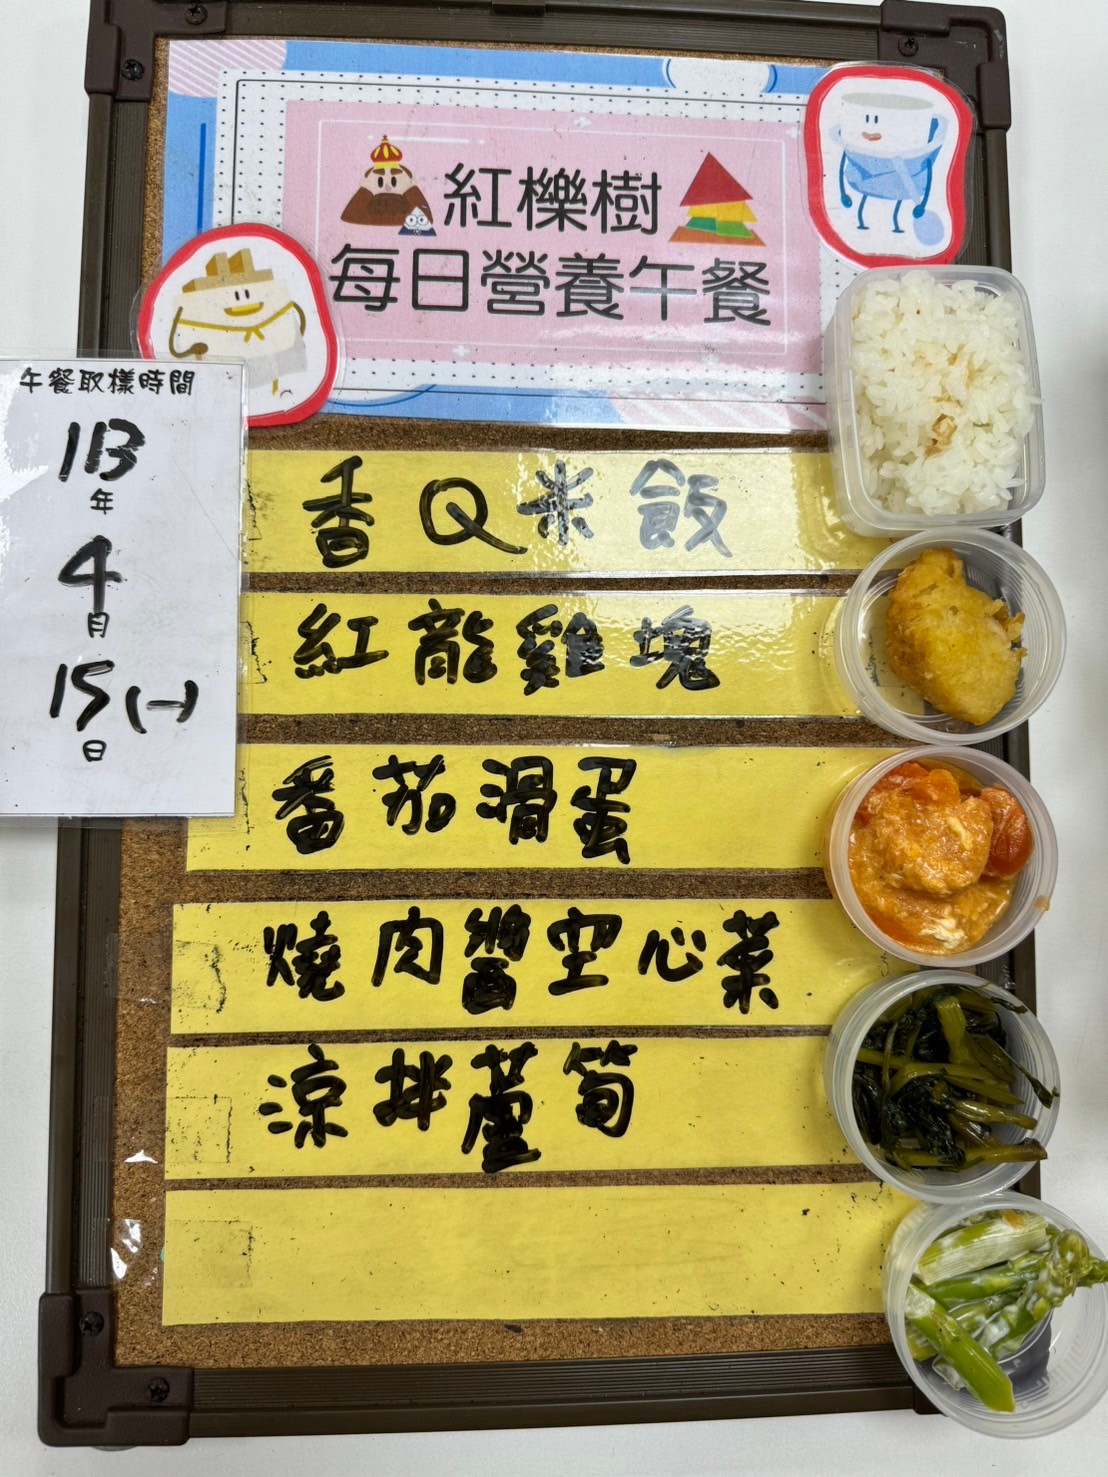 紅櫟樹
每日營養午餐
午餐取樣時間
113
年
4
月
15(一)
日
香Q米飯
紅龍雞塊
番茄滑蛋
燒肉醬空心菜
涼拌蘆筍